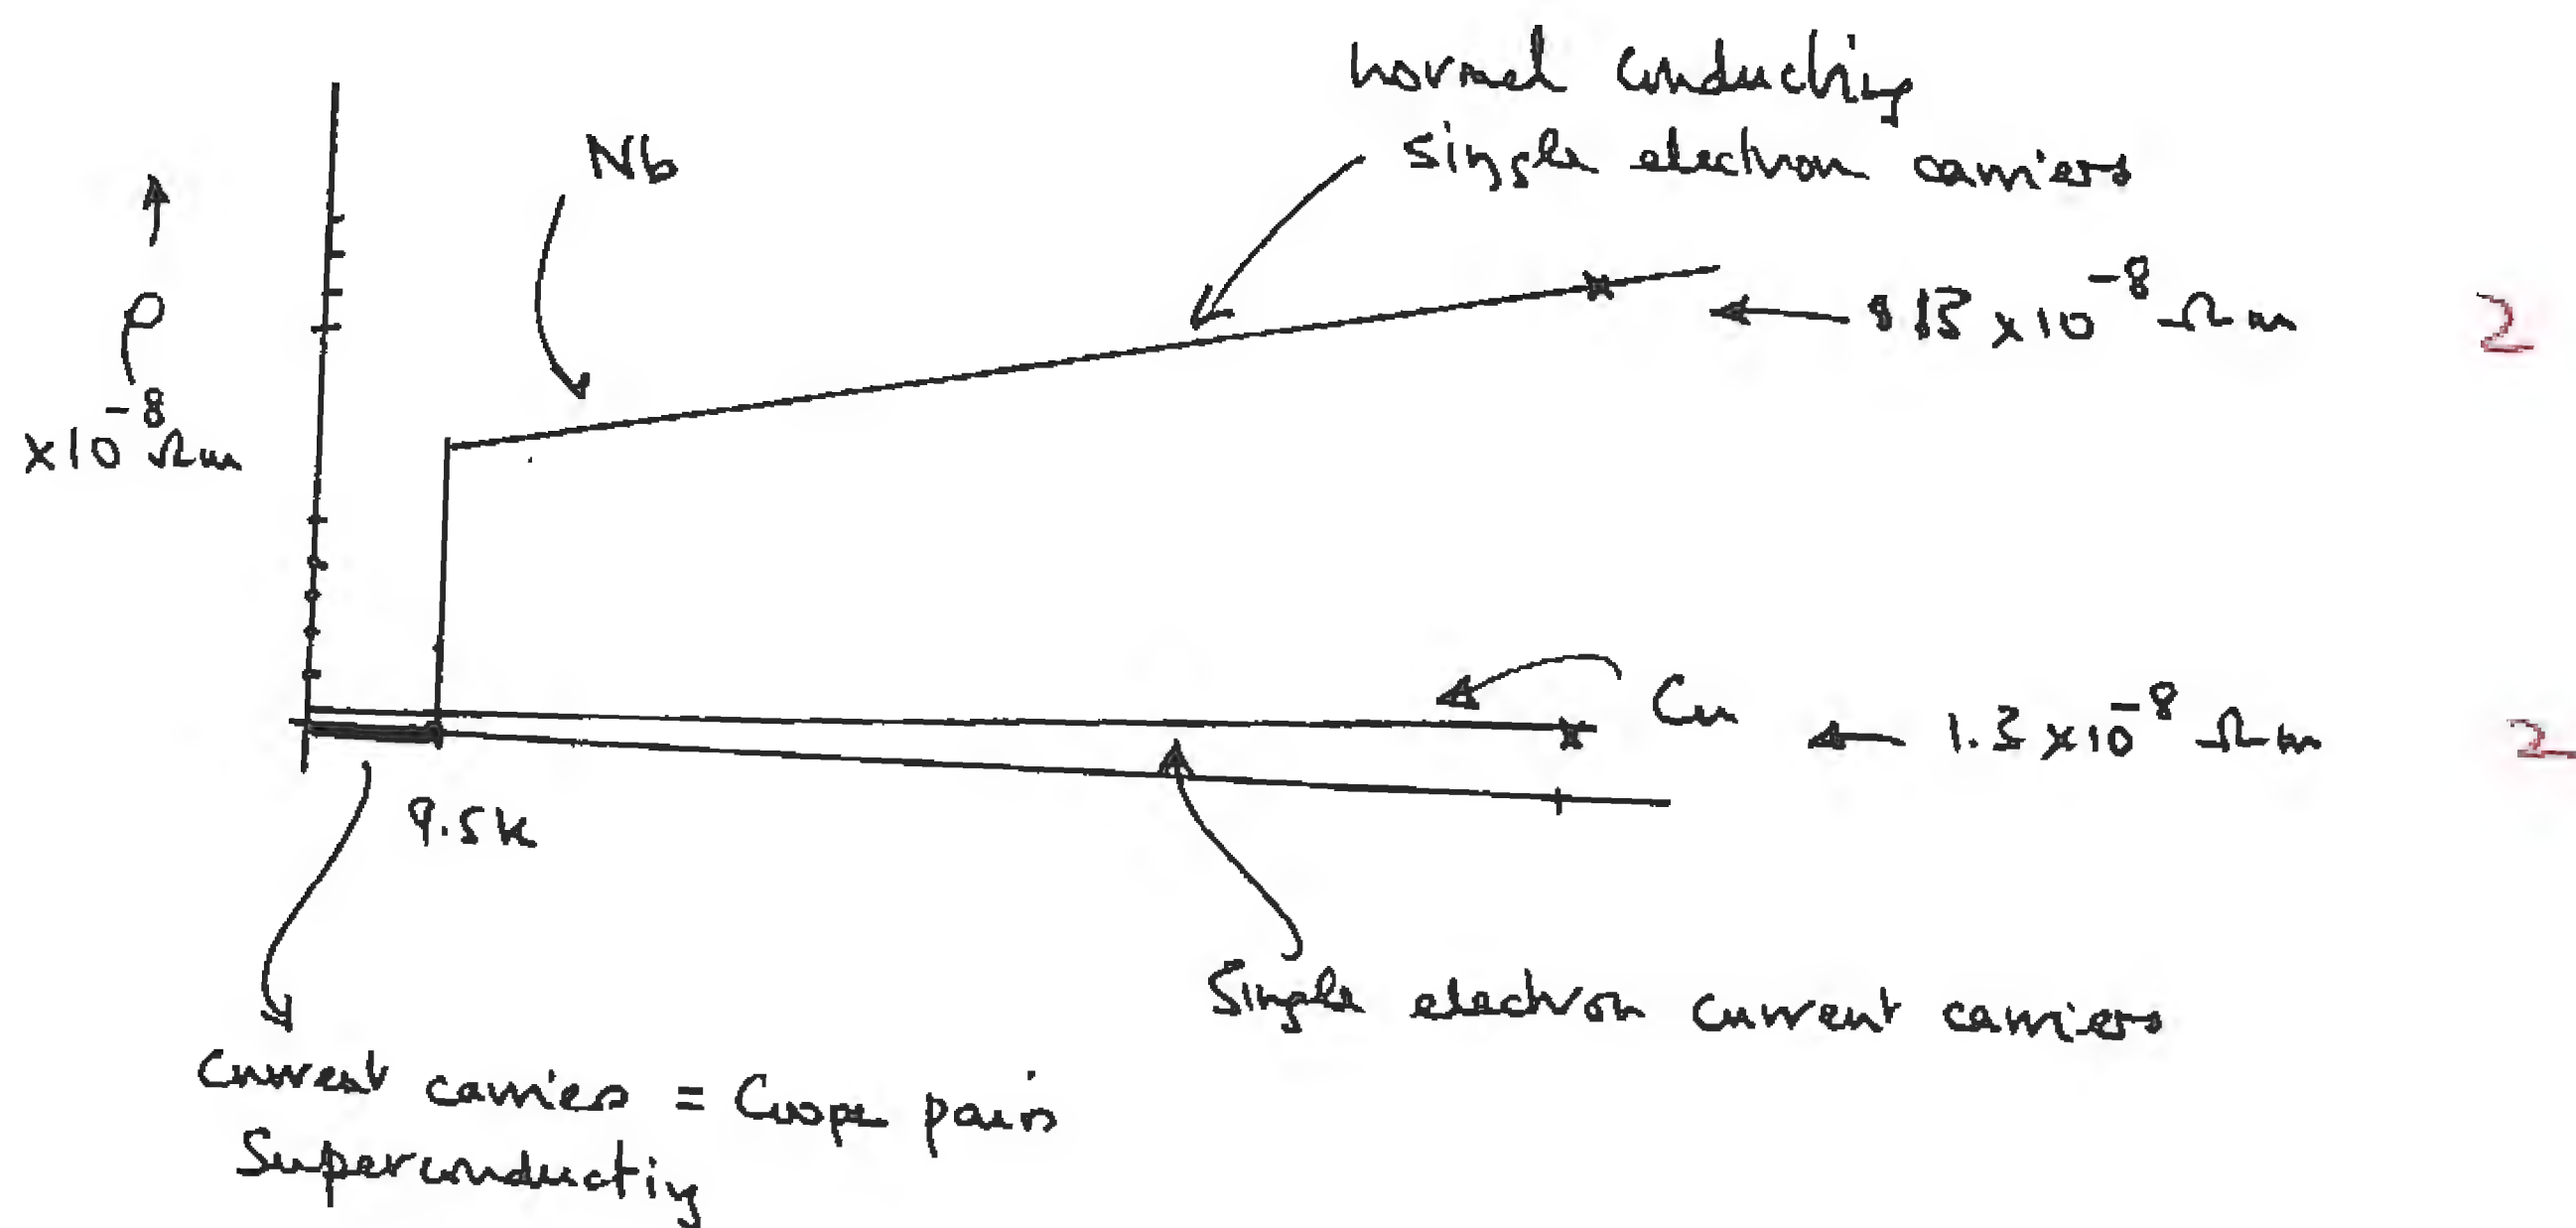 normal conducting
single electron carriers
Nb
↑
ρ
x10⁻⁸ Ωm
x10⁻⁸ Ωm
2
Cu
1.3 x10⁻⁸ Ωm
2
9.5K
Single electron current carriers
Current carriers = Cooper pairs
Superconducting